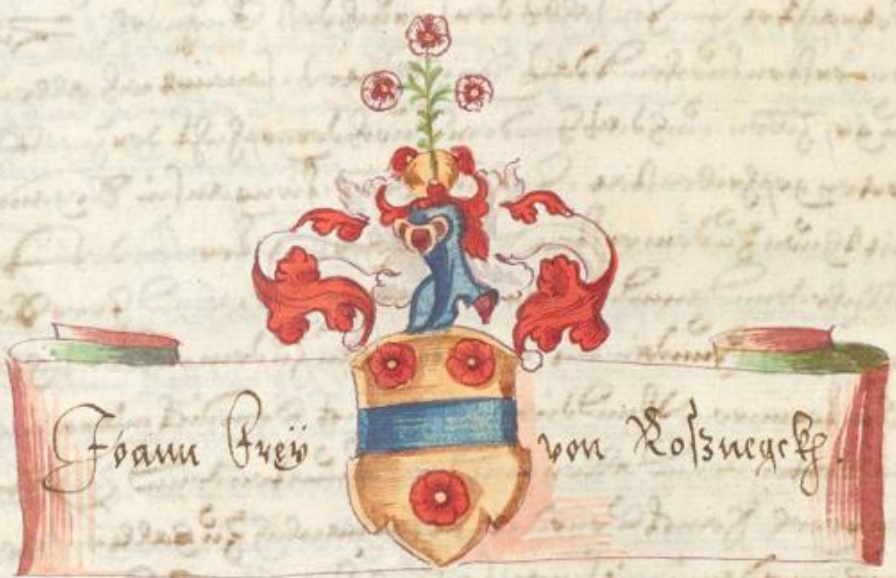 Joann Freÿ von Roßnegckh.